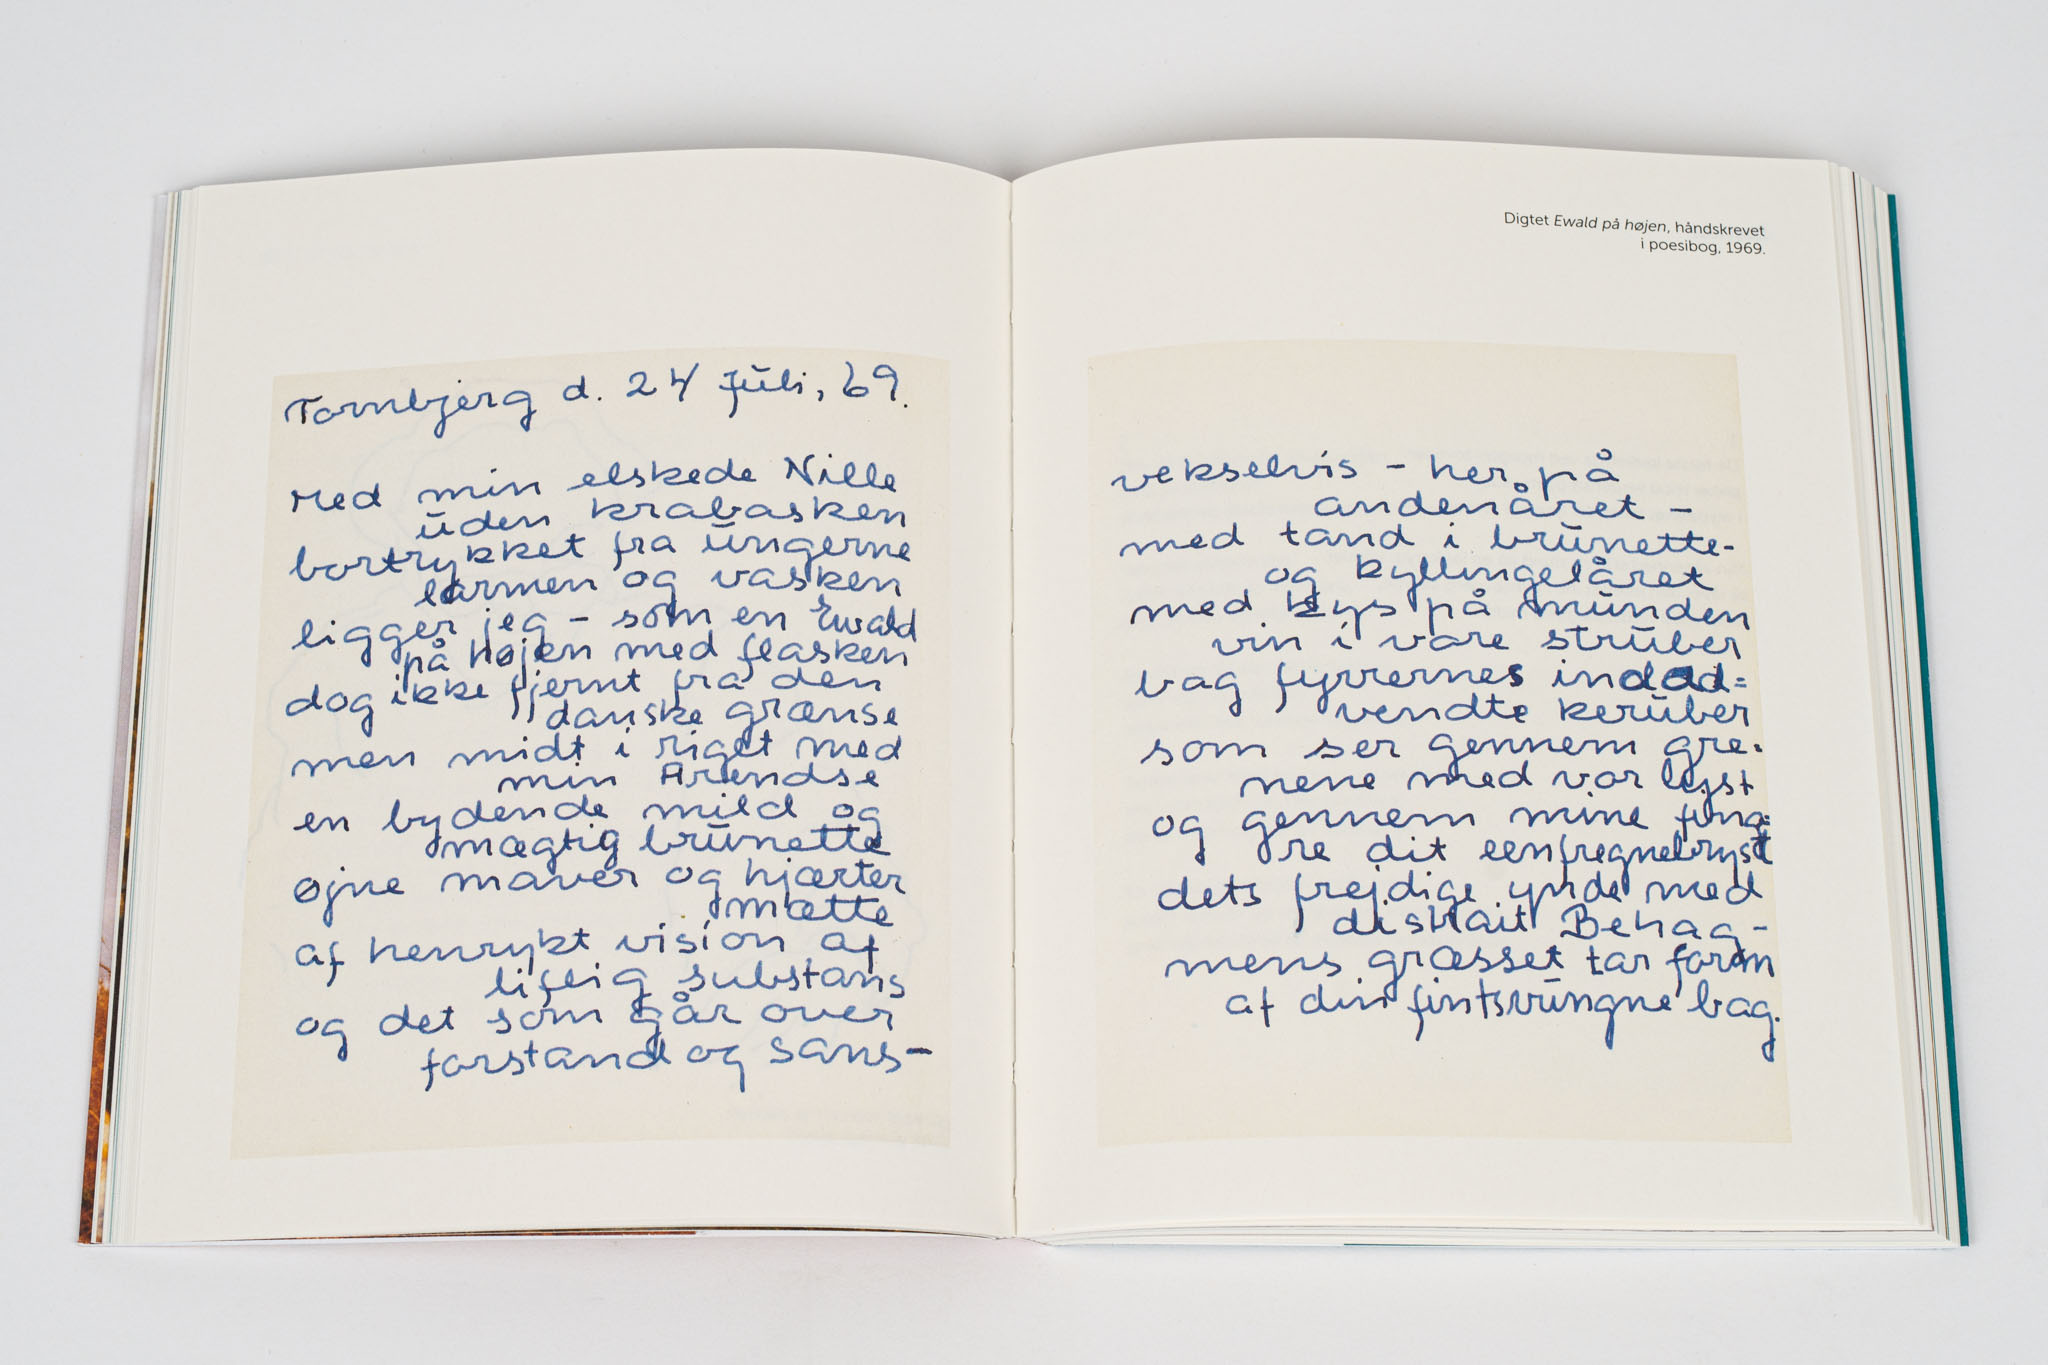 Tornbjerg d. 24 Juli, 69.
Med min elskede Nille
uden krabasken
bortrykket fra ungerne
larmen og vasken
ligger jeg – som en Ewald
på højen med flasken
dog ikke fjernt fra den
danske grænse
men midt i riget med
min Arendse
en bydende mild og
mægtig brunette
øjne maver og hjærter
mætte
af henrykt vision af
liflig substans
og det som går over
forstand og sans –
Digtet Ewald på højen, håndskrevet
i poesibog, 1969.
vekselvis – her på
andenåret –
med tand i brunette-
og kyllingelåret
med kys på munden
vin i vore struber
bag fyrrernes indad=
vendte keruber
som ser gennem gre-
nene med vor lyst
og gennem mine fing-
re dit eenfregnebryst
dets frejdige ynde med
diskait Behag –
mens græsset tar form
af din fintsvungne bag.